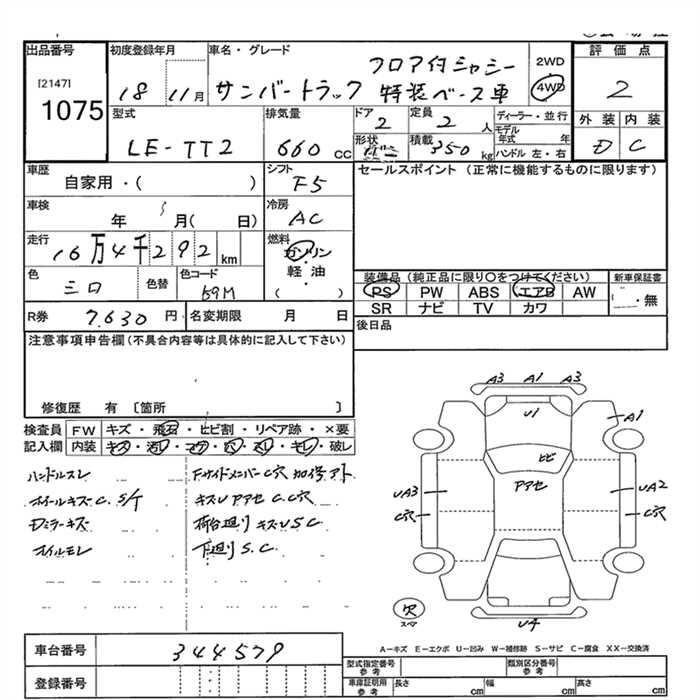 出品番号
[2147]
1075
初度登録年月
18 11月
車名・グレード
フロア付シャシー
サンバートラック 特装ベース車
2WD
4WD
評価点
2
型式
LE-TT2
排気量
660 cc
ドア
2
定員
2 人
形状
積載
350 kg
ディーラー・並行
モデル年式 年
ハンドル 左・右
外装 内装
D C
車歴
自家用・( )
シフト
F5
車検
年 月( 日)
冷房
AC
走行
16万4千292km
燃料
ガソリン
軽油
( ・ )
色
シロ
色替
色コード
69M
R券 7.630 円
名変期限 月 日
セールスポイント (正常に機能するものに限ります)
装備品 (純正品に限り○をつけてください)
新車保証書
PS PW ABS エアB AW
・無
SR ナビ TV カワ
後日品
注意事項申告欄(不具合内容等は具体的に記入して下さい)
修復歴 有 〔箇所 〕
検査員記入欄
FW キズ・飛石・ヒビ割・リペア跡・×要
内装 キズ・汚レ・コゲ・穴・スレ・キレ・破レ
ハンドルスレ
ホイールキズC. S/T
Dミラーキズ
オイルモレ
Fサイドメンバー C穴 加修アト
キズU アアセ C.C穴
荷台廻り キズU S C
下廻り S.C.
A3 A1 A3
U1
A1
ヒビ
アアセ
UA3
C穴
UA2
C穴
欠
スマ
U4
A−キズ E−エクボ U−凹み W−補修跡 S−サビ C−腐食 XX−交換済
車台番号 344579
登録番号
型式指定番号 参考
類別区分番号 参考
車庫証明用 参考
長さ cm
幅 cm
高さ cm